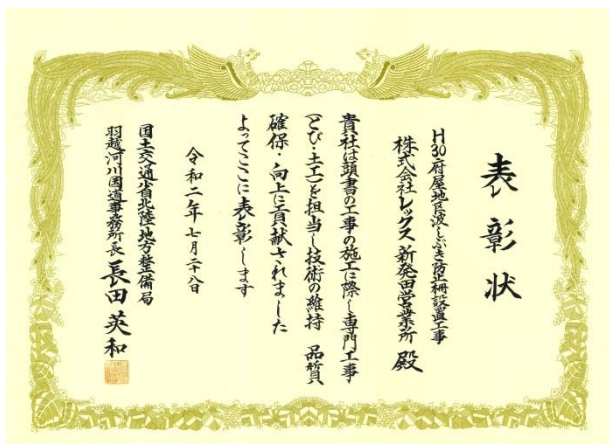 表彰状
H30府屋地区波しぶき防止柵設置工事
株式会社レックス新発田営業所 殿
貴社は頭書の工事の施工に際し専門工事
(とび・土工)を担当し技術の維持 品質
確保・向上に貢献されました
よってここに表彰します
令和二年七月二十八日
国土交通省北陸地方整備局
羽越河川国道事務所長 長田英和